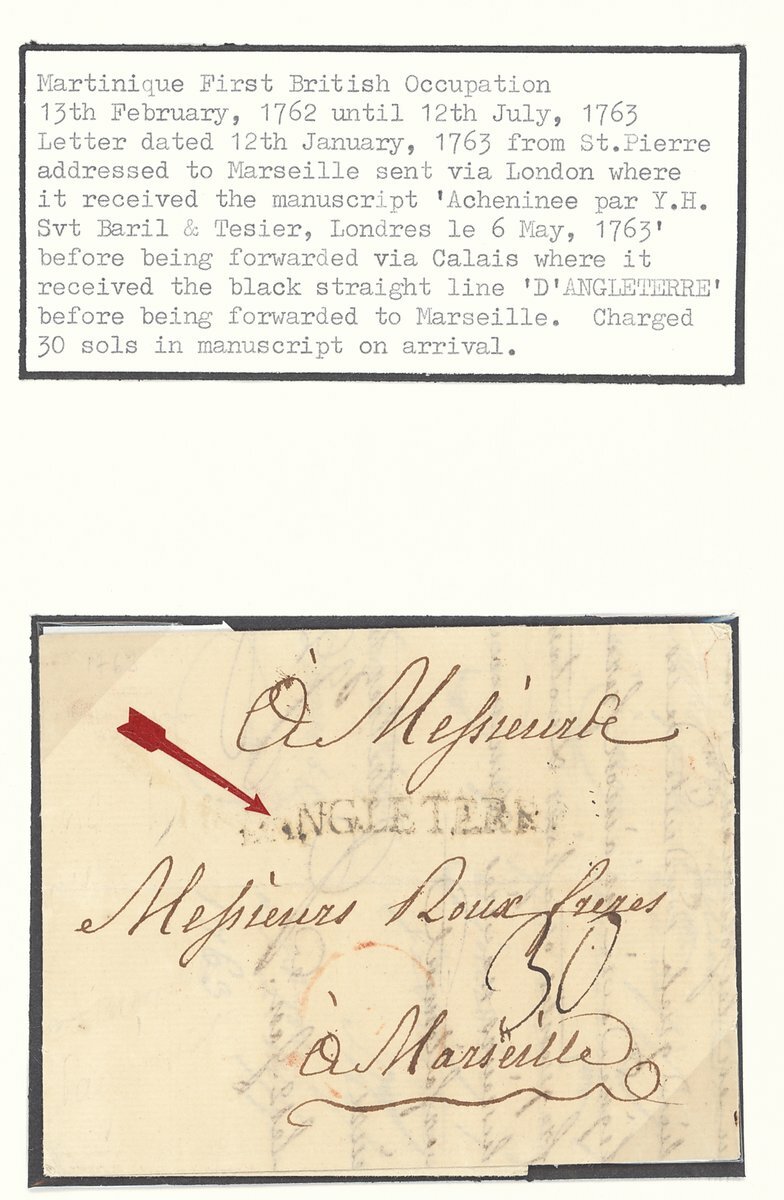 Martinique First British Occupation
13th February, 1762 until 12th July, 1763
Letter dated 12th January, 1763 from St.Pierre
addressed to Marseille sent via London where
it received the manuscript 'Acheninee par Y.H.
Svt Baril & Tesier, Londres le 6 May, 1763'
before being forwarded via Calais where it
received the black straight line 'D'ANGLETERRE'
before being forwarded to Marseille.  Charged
30 sols in manuscript on arrival.
À Messieurs
D'ANGLETERRE
Messieurs Roux freres
30
à Marseille